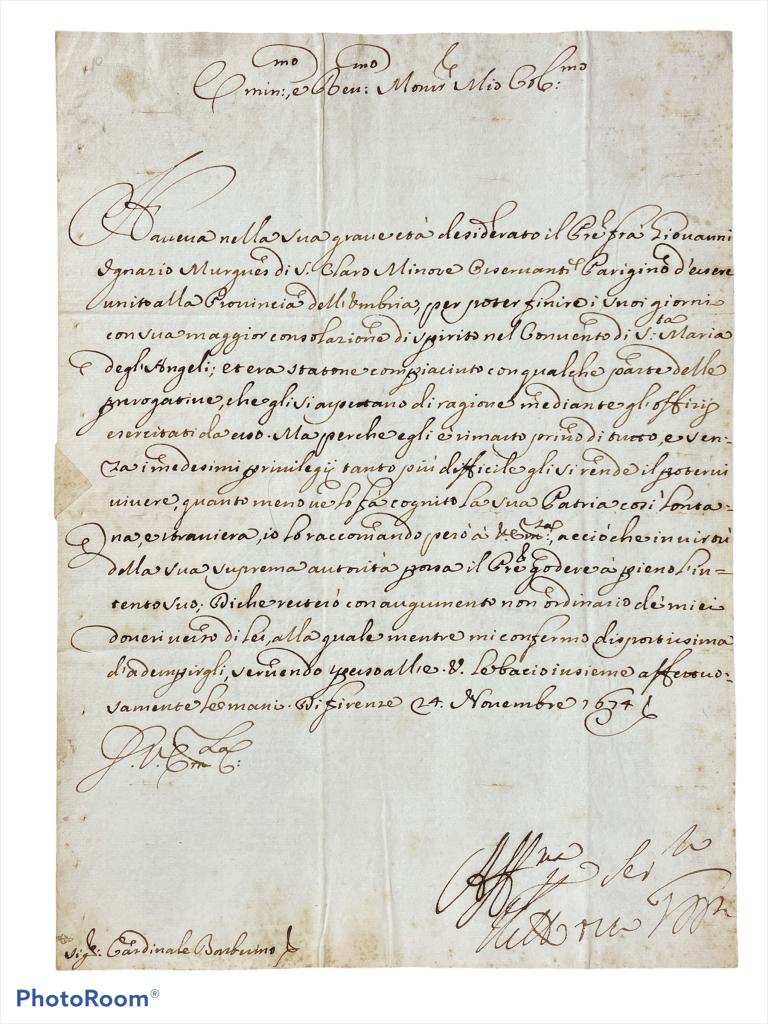 Emin:mo, e Reu:mo Monsr Mio Col:mo
Haueua nella sua graue età desiderato il Pre fra Giouanni
Ignazio di S. Claro Minore Osseruante Parigino d'essere
unito alla Prouincia dell'Umbria, per poter finire i suoi giorni
con sua maggior consolazione di spirito nel Conuento di S:ta Maria
degl'Angeli; et era statone compiaciuto con qualche parte delle
prerogatiue, che gli si aspettano di ragione mediante gl'offizij
esercitati da esso. Ma perche egli è rimasto priuo di tutto, e sen-
za i medesimi priuilegij tanto più difficile gli si rende il poterui
viuere, quanto meno ue lo fà cognito la sua Patria così lonta-
na, e straniera, io lo raccomando però à V. Em:za, acciò che in uirtù
della sua suprema autorità possa il Pre godere à pieno l'in-
tento suo; Di che resterò con augumento non ordinario de miei
doueri uerso di lei, alla quale mentre mi confermo dispostissima
d'adempirgli, all' E. V. le bacio insieme affettuo-
samente le mani. Di Firenze 24. Nouembre 1674
D. V. Em:za
Aff:ma Ser:
Vittoria
Sigr: Cardinale Barberino
PhotoRoom®